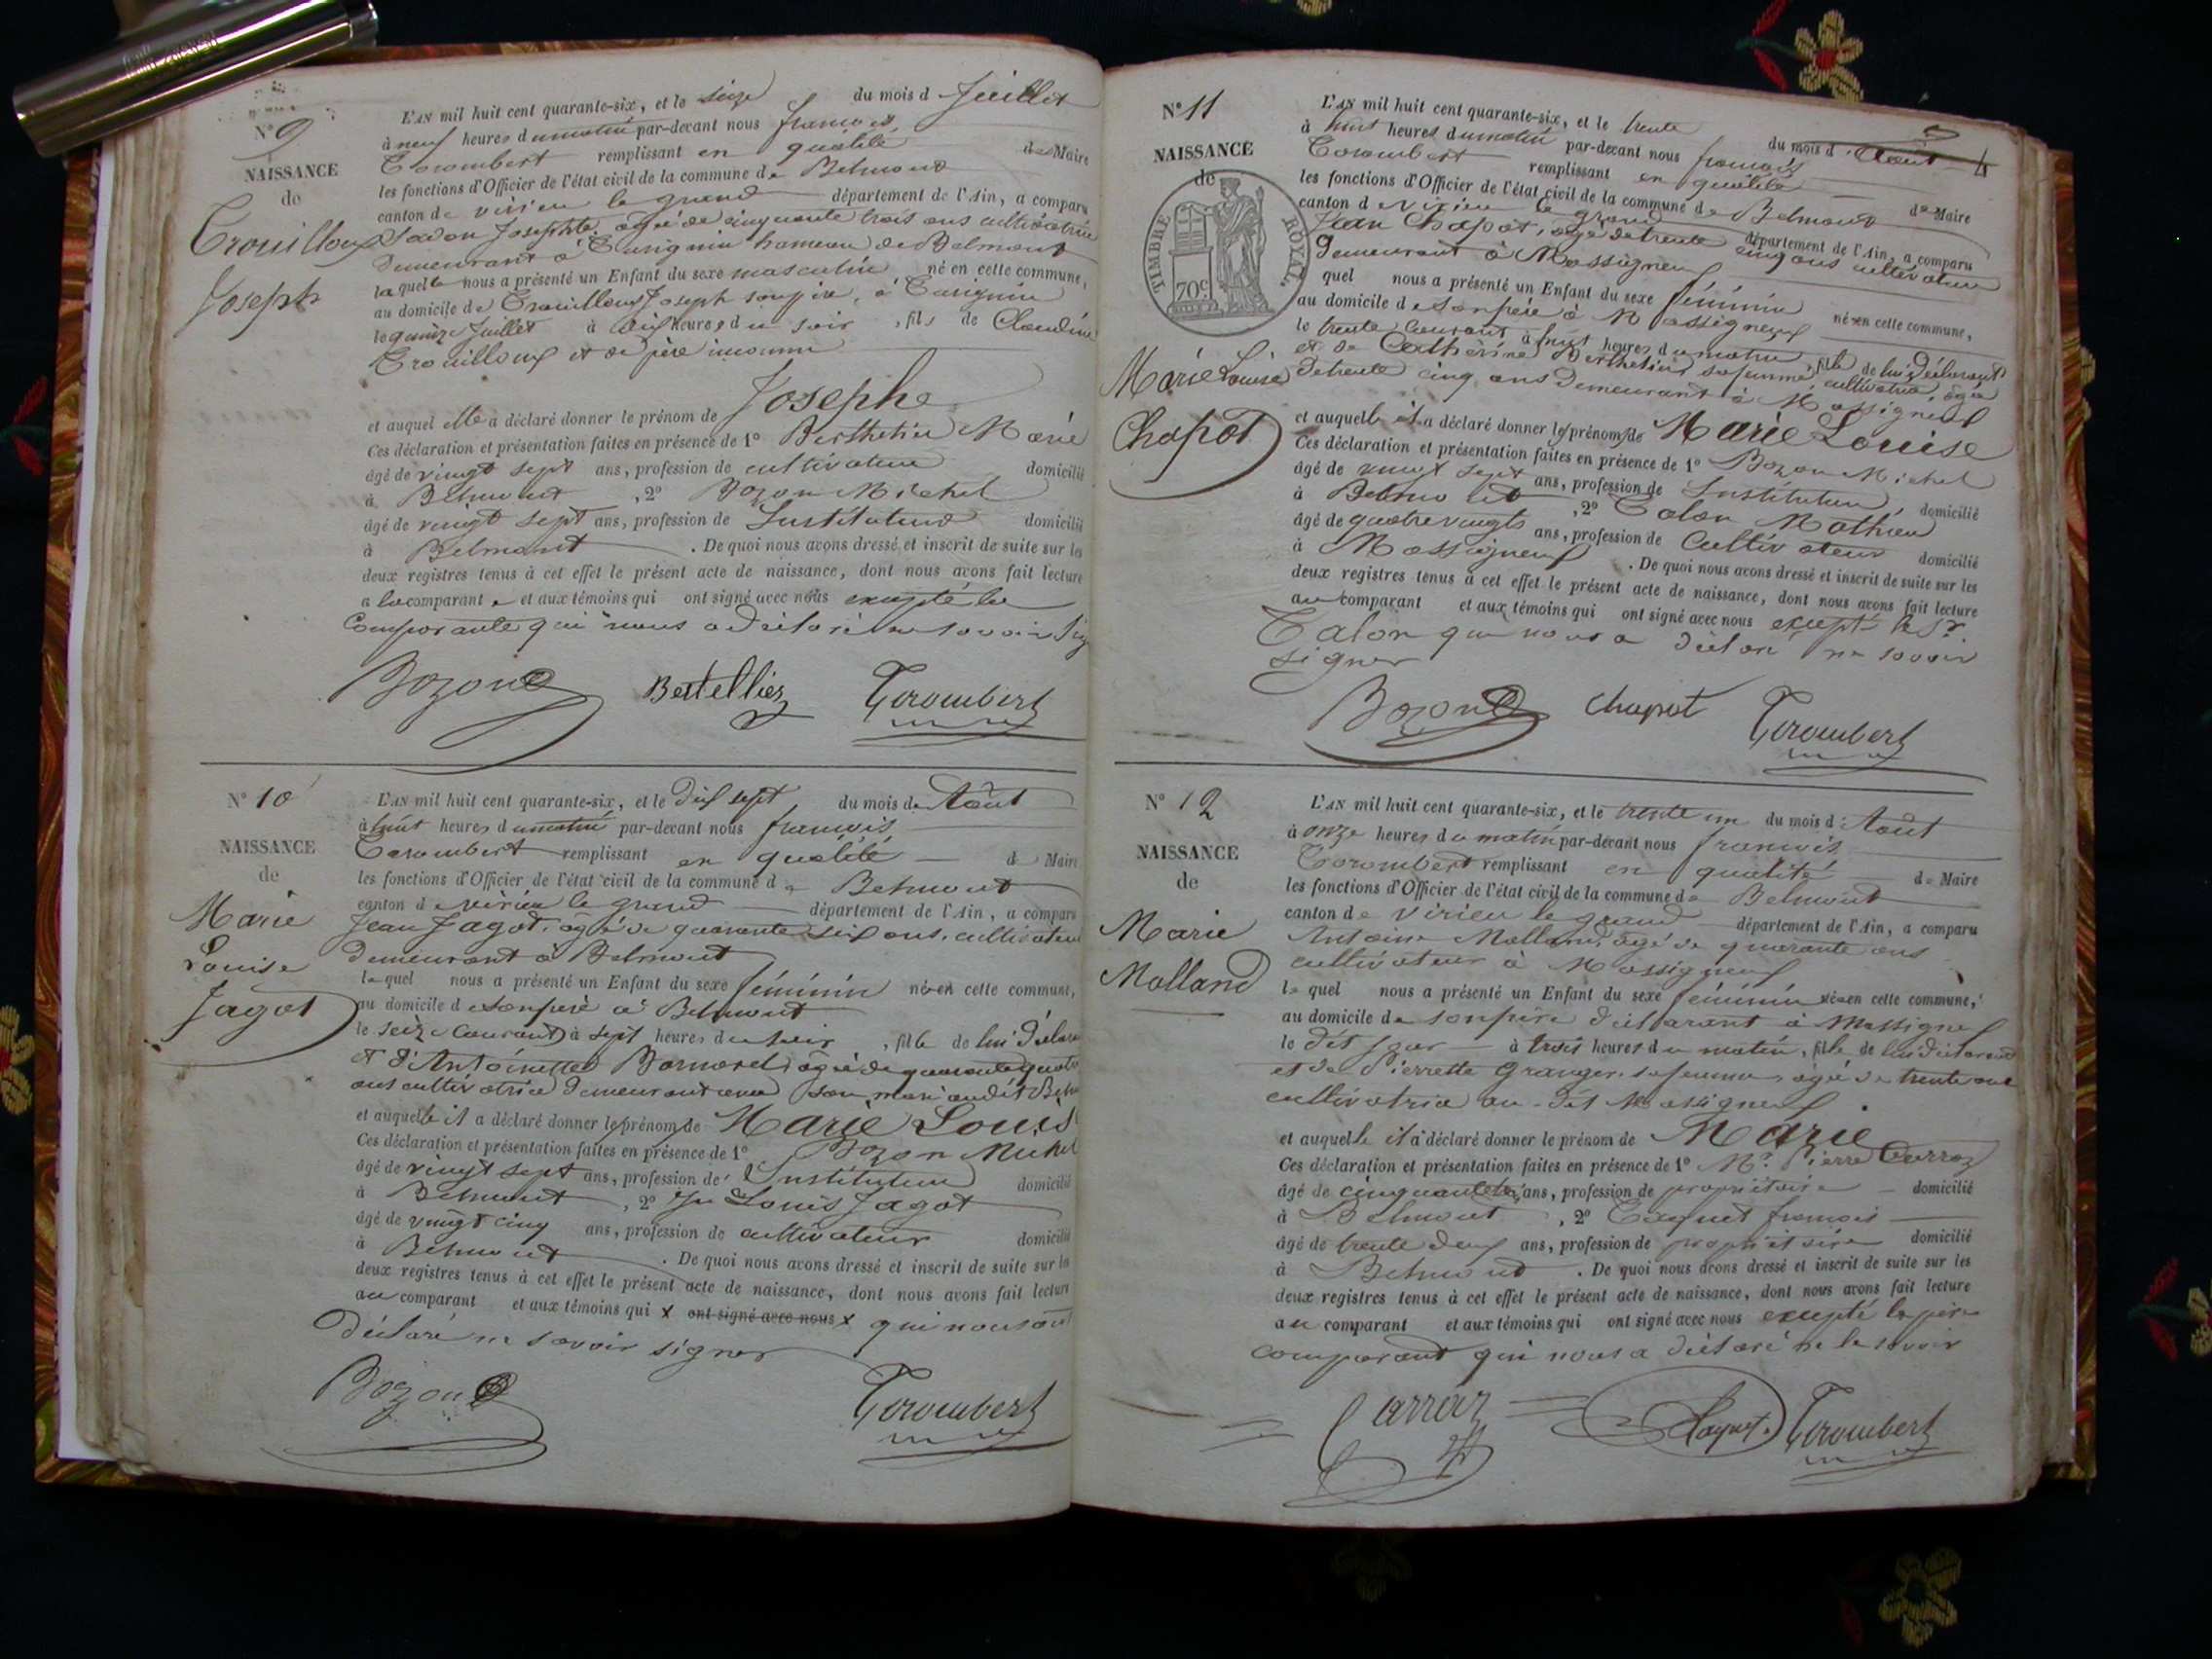 N° 9
NAISSANCE
de
Trouilloux
Joseph
L'AN mil huit cent quarante-six, et le seize du mois d Juillet
à neuf heures du matin par-devant nous françois
Corombert remplissant en qualité de Maire
les fonctions d'Officier de l'état civil de la commune de Belmont
canton de virieu le grand département de l'Ain, a comparu
Josephte âgée de cinquante trois ans cultivatrice
demeurant à hameau de Belmont
laquelle nous a présenté un Enfant du sexe masculin né en cette commune,
au domicile de Trouilloux Joseph son père, à
le quinze Juillet à dix heures du soir, fils de Claudine
Trouilloux et de père inconnu
et auquel elle a déclaré donner le prénom de Josephe
Ces déclaration et présentation faites en présence de 1° Berthelier Marie
âgé de vingt sept ans, profession de cultivateur domicilié
à Belmont, 2° Bozon Michel
âgé de vingt sept ans, profession de Instituteur domicilié
à Belmont. De quoi nous avons dressé et inscrit de suite sur les
deux registres tenus à cet effet le présent acte de naissance, dont nous avons fait lecture
a la comparante et aux témoins qui ont signé avec nous excepté la
comparante qui nous a déclaré ne savoir sig
Bozon Bertellier Corombert
N° 10
NAISSANCE
de
Marie
Louise
Jagot
L'AN mil huit cent quarante-six, et le dix sept du mois de Août
à huit heures du matin par-devant nous françois
Corombert remplissant en qualité d Maire
les fonctions d'Officier de l'état civil de la commune de Belmont
canton de virieu le grand département de l'Ain, a comparu
Jean Jagot, âgé de quarante six ans, cultivateur
demeurant à Belmont
lequel nous a présenté un Enfant du sexe féminin né en cette commune,
au domicile de son père à Belmont
le seize courant à sept heures du soir, fille de lui déclara
et d'Antoinette Bornarel âgée de quarante quatre
ans cultivatrice demeurant avec son mari audit Belm
et auquelle il a déclaré donner le prénom de Marie Louise
Ces déclaration et présentation faites en présence de 1° Bozon Michel
âgé de vingt sept ans, profession de Instituteur domicilié
à Belmont, 2° Louis Jagot
âgé de vingt cinq ans, profession de cultivateur domicilié
à Belmont. De quoi nous avons dressé et inscrit de suite sur les
deux registres tenus à cet effet le présent acte de naissance, dont nous avons fait lecture
au comparant et aux témoins qui x ont signé avec nous x qui nous ont
déclaré ne savoir signer
Bozon Corombert
4
N° 11
NAISSANCE
de
TIMBRE ROYAL
70c
Marie Louise
Chapot
L'AN mil huit cent quarante-six, et le trente du mois d Août
à huit heures du matin par-devant nous françois
Corombert remplissant en qualité de Maire
les fonctions d'Officier de l'état civil de la commune de Belmont
canton de virieu le grand département de l'Ain, a comparu
Jean Chapot, âgé de trente cinq ans cultivateur
demeurant à Massigneux
quel nous a présenté un Enfant du sexe féminin né en cette commune,
au domicile de son père à Massigneux
le trente courant à huit heures du matin, fille de lui déclarant
et de Catherine Berthelier sa femme, cultivatrice, âgée
de trente cinq ans demeurant à Massigneux
et auquelle il a déclaré donner les prénoms de Marie Louise
Ces déclaration et présentation faites en présence de 1° Bozon Michel
âgé de vingt sept ans, profession de Instituteur, domicilié
à Belmont, 2° Talon Mathieu
âgé de quatre vingts ans, profession de Cultivateur domicilié
à Massigneux. De quoi nous avons dressé et inscrit de suite sur les
deux registres tenus à cet effet le présent acte de naissance, dont nous avons fait lecture
au comparant et aux témoins qui ont signé avec nous excepté le Sr.
Talon qui nous a déclaré ne savoir
signer
Bozon Chapot Corombert
N° 12
NAISSANCE
de
Marie
Molland
L'AN mil huit cent quarante-six, et le trente un du mois d Août
à onze heures du matin par-devant nous françois
Corombert remplissant en qualité de Maire
les fonctions d'Officier de l'état civil de la commune de Belmont
canton de virieu le grand département de l'Ain, a comparu
Antoine Molland, âgé de quarante ans
cultivateur à Massigneux
lequel nous a présenté un Enfant du sexe féminin née en cette commune,
au domicile de son père déclarant à Massigneux
le dit jour à trois heures du matin, fille de lui déclarant
et de Pierrette Granger sa femme âgée de trente ans
cultivatrice au dit Massigneux
et auquelle il a déclaré donner le prénom de Marie
Ces déclaration et présentation faites en présence de 1° Mr. Pierre Carroz
âgé de cinquante ans, profession de propriétaire domicilié
à Belmont, 2° françois
âgé de trente deux ans, profession de propriétaire domicilié
à Belmont. De quoi nous avons dressé et inscrit de suite sur les
deux registres tenus à cet effet le présent acte de naissance, dont nous avons fait lecture
au comparant et aux témoins qui ont signé avec nous excepté le père
comparant qui nous a déclaré ne le savoir
Carroz Corombert